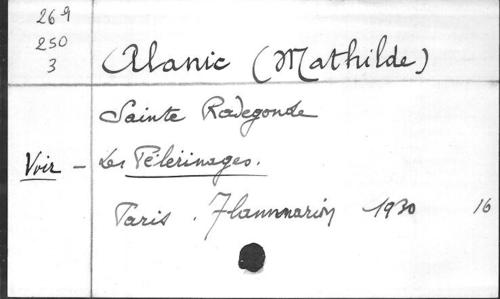 269
250
3
Alanic (Mathilde)
Sainte Radegonde
Voir - Les Pèlerinages.
Paris. Flammarion 1930 16